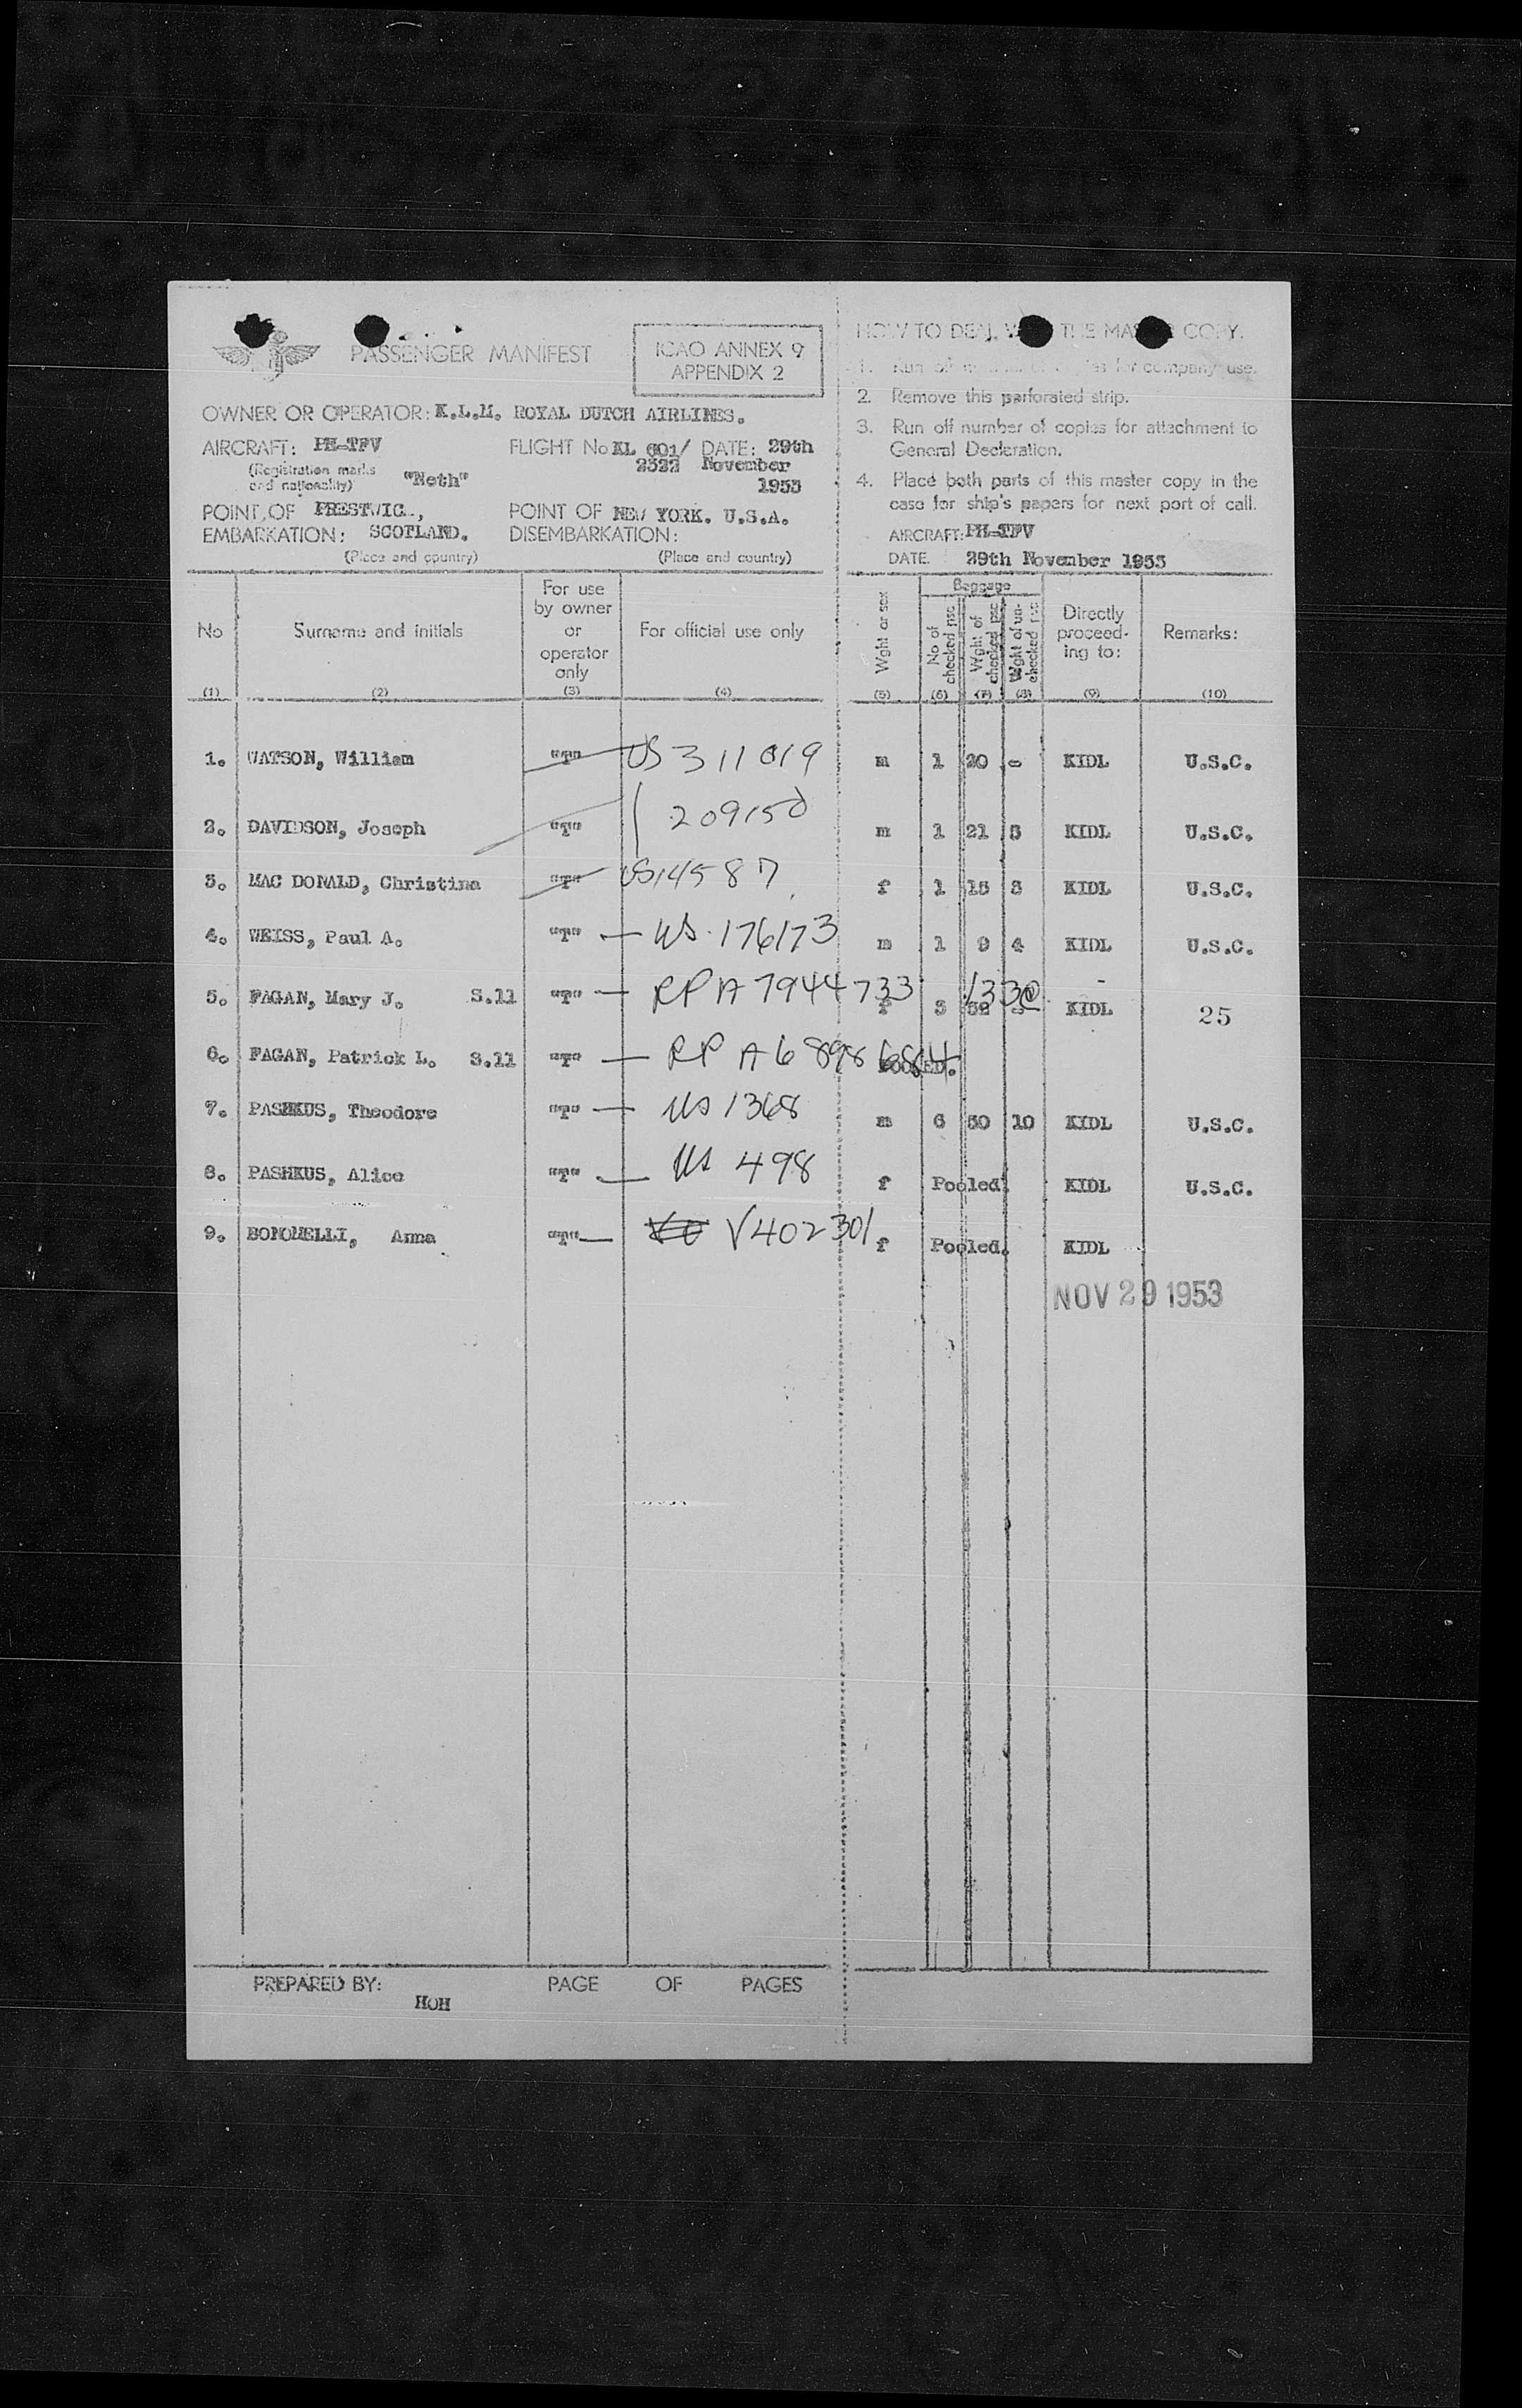 PASSENGER MANIFEST
ICAO ANNEX 9
APPENDIX 2
OWNER OR OPERATOR: K.L.M. ROYAL DUTCH AIRLINES.
AIRCRAFT: PH-TPV
(Registration marks
and nationality) "Neth"
FLIGHT No KL 601/
2322
DATE: 29th
November
1953
POINT OF
EMBARKATION: SCOTLAND.
(Place and country)
POINT OF NEW YORK. U.S.A.
DISEMBARKATION:
(Place and country)
HOW TO DEAL THE COPY.
1. Run for company use.
2. Remove this perforated strip.
3. Run off number of copies for attachment to
General Declaration.
4. Place both parts of this master copy in the
case for ship's papers for next port of call.
AIRCRAFT: PH-TPV
DATE. 29th November 1953
No Surname and initials For use by owner or operator only For official use only Wght or sex Baggage No of checked pcs Wght of checked pcs Wght of un-checked pcs Directly proceed-ing to: Remarks:
(1) (2) (3) (4) (5) (6) (7) (8) (9) (10)
1. WATSON, William "T" US 311019 m 1 20 - KIDL U.S.C.
2. DAVIDSON, Joseph "T" 209150 m 1 21 5 KIDL U.S.C.
3. MAC DONALD, Christina "T" US14587 f 1 15 3 KIDL U.S.C.
4. WEISS, Paul A. "T" US 176173 m 1 9 4 KIDL U.S.C.
5. FAGAN, Mary J. S.11 "T" RP A7944733 f 3 52 KIDL 25
6. FAGAN, Patrick L. S.11 "T" RP A6898684 POOLED.
7. PASHKUS, Theodore "T" US 1368 m 6 50 10 KIDL U.S.C.
8. PASHKUS, Alice "T" US 498 f Pooled. KIDL U.S.C.
9. BONOMELLI, Anna "T" V402301 f Pooled. KIDL
NOV 29 1953
PREPARED BY: HOH PAGE OF PAGES